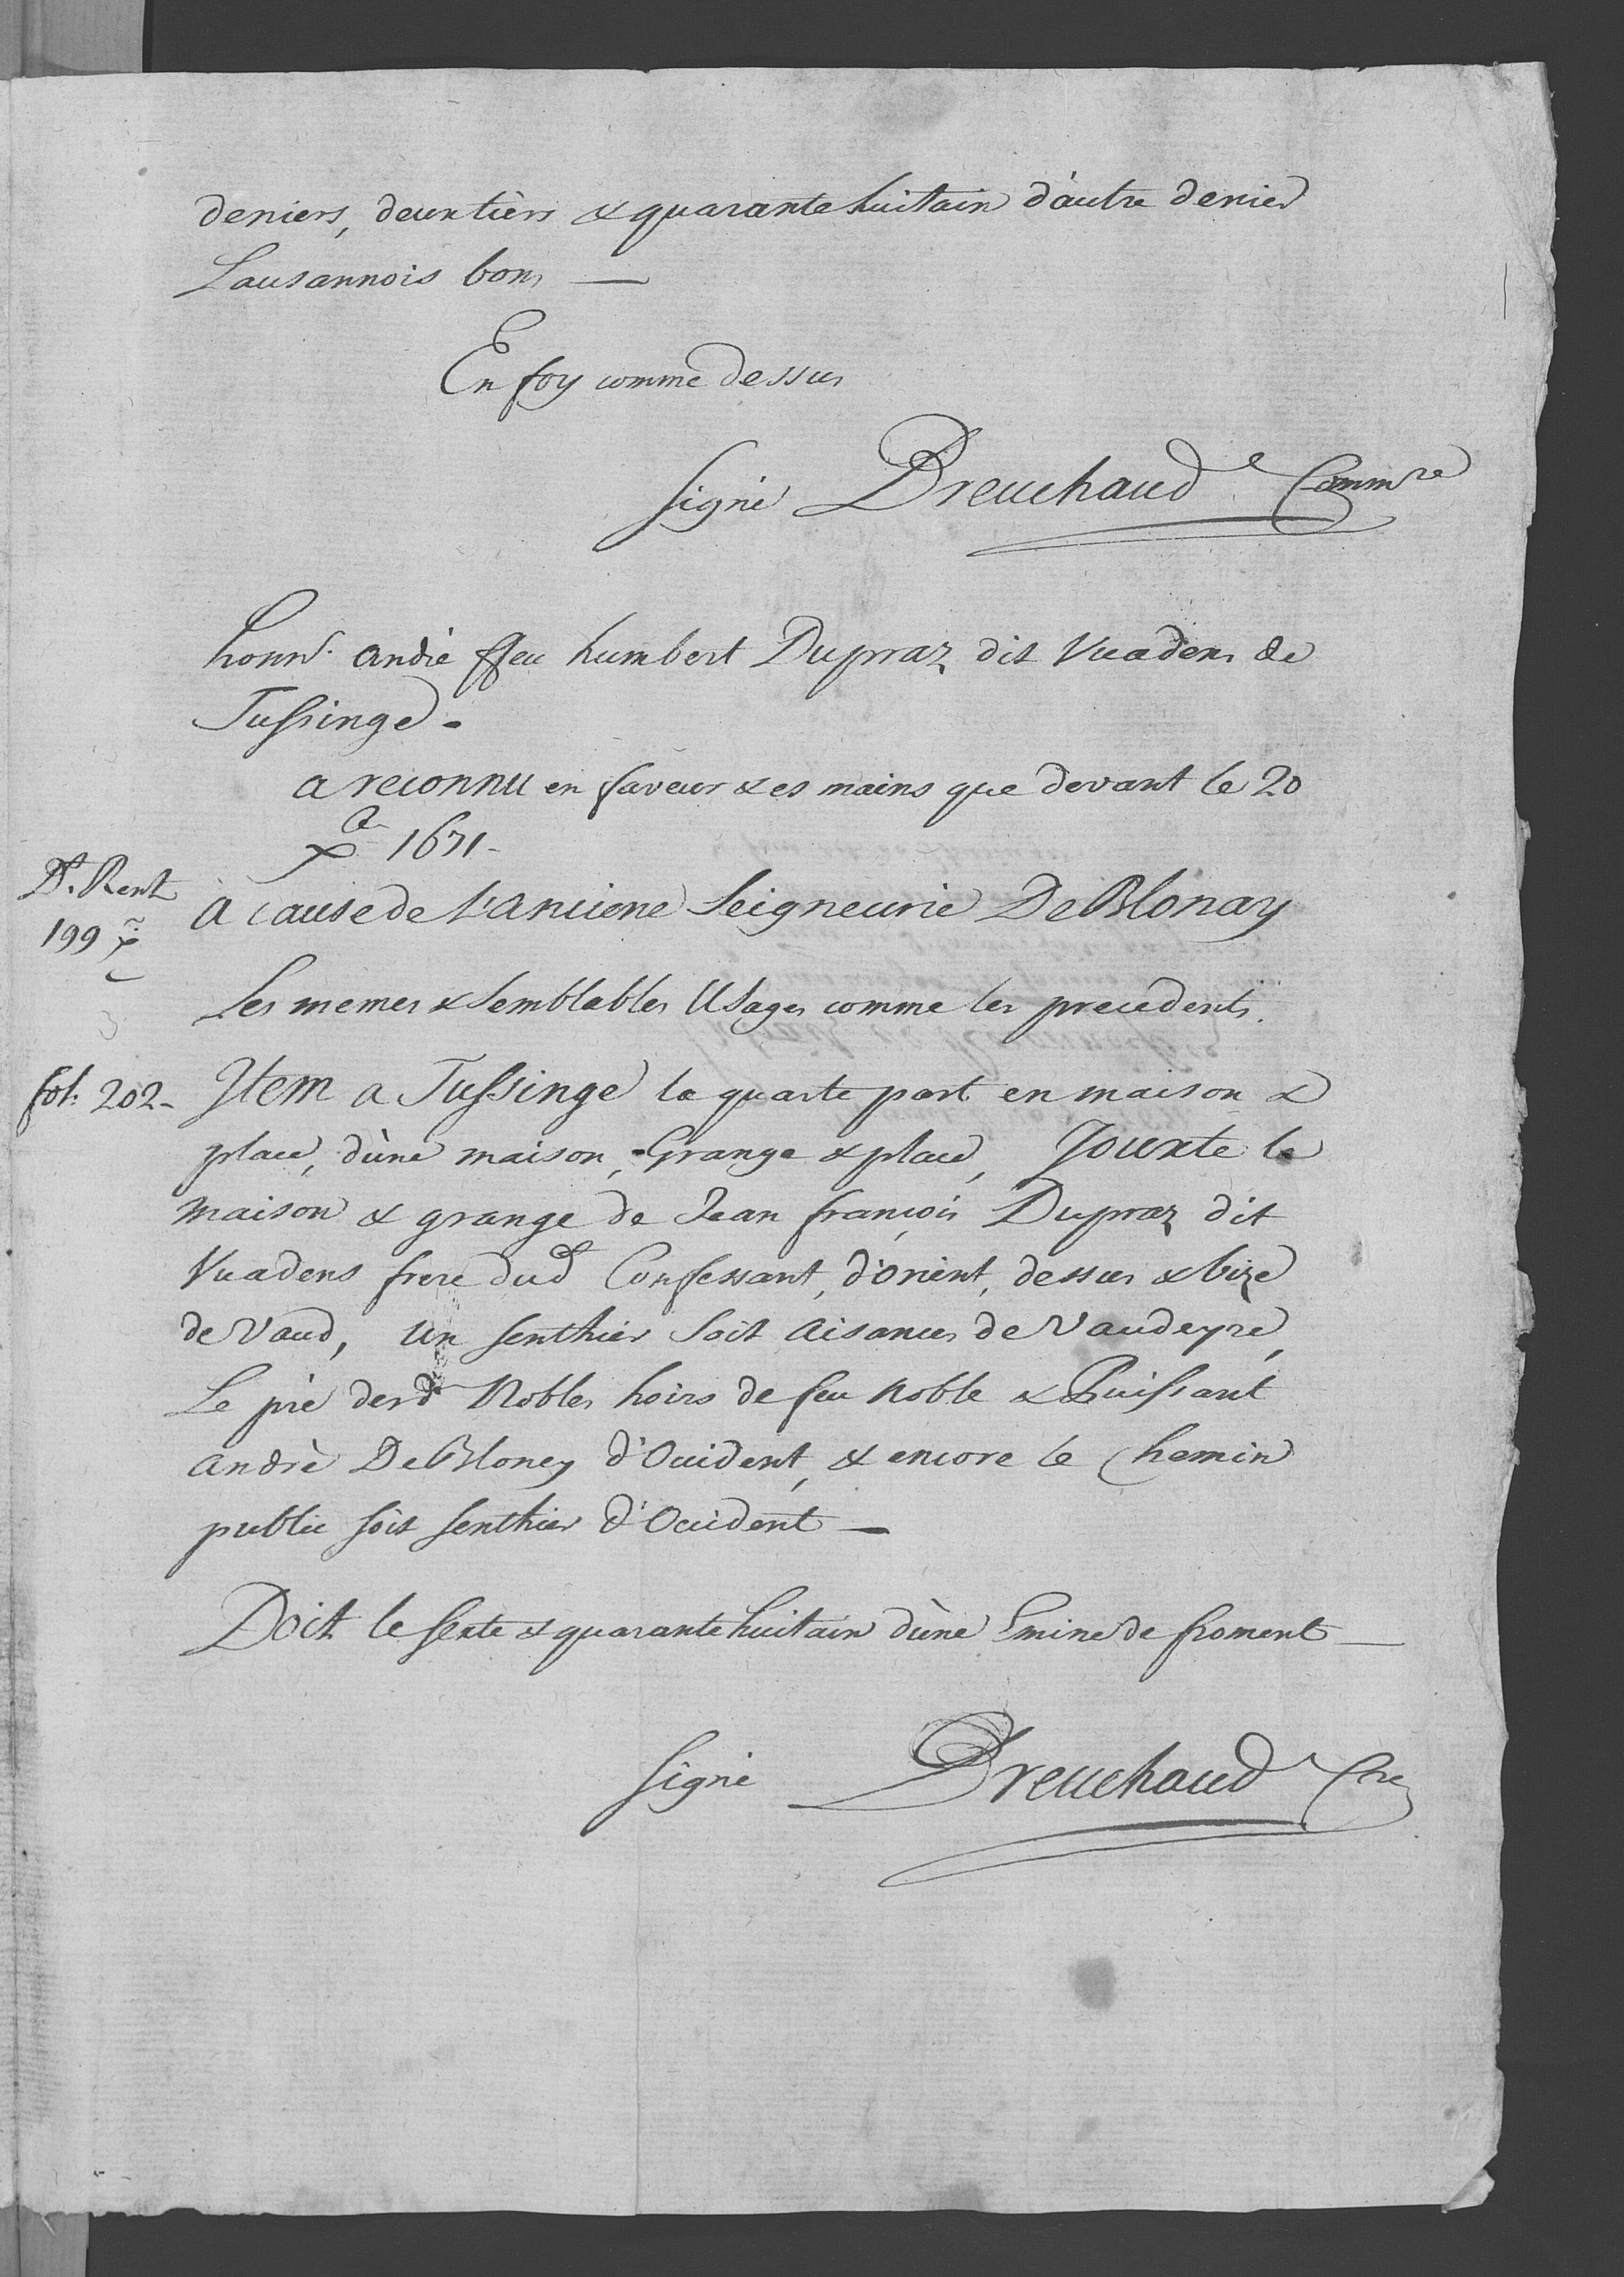 deniers, deux tiers & quarante huitain d'autre denier
Lausannois bons —
En foy comme dessus
signé Breuchaud Commre
honn. André ffeu humbert Dupraz dit Vuadens de
Tussinge -
a reconnu en faveur & es mains que devant le 20
1671 -
Dt. Rent
199
à cause de l'anciene Seigneurie De Blonay
Les memes & semblables Usages comme les precedents.
fol. 202 -
Item a Tussinge la quarte part en maison &
place, d'une maison, Grange & place, Jouxte la
maison & grange de Jean françois Dupraz dit
Vuadens frere dud Confessant, d'orient, dessus & bize
de Vaud, un senthier soit aisances de Vaudeyre,
Le pré desd Nobles hoirs de feu Noble & Puissant
André De Bloney d'Occident, & encore le Chemin
public soit senthier d'Occident —
Doit le sexte & quarante huitain d'une Emine de froment —
signé Breuchaud Cre